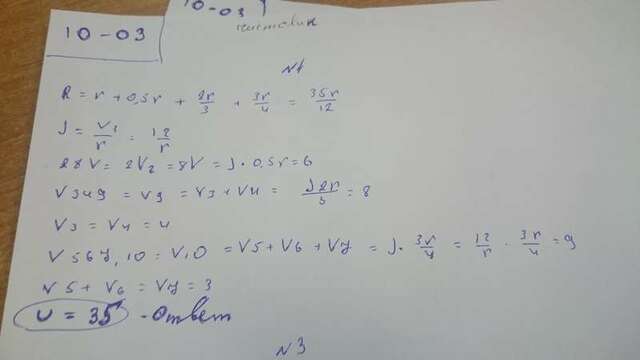 10-03
10-03
чистовик
№1
R = r + 0,5r + 2r/3 + 3r/4 = 35r/12
J = V1/r = 12/r
28V = 2V2 = 8V = J · 0,5r = 6
V349 = V9 = V3 + V4 = J2r/3 = 8
V3 = V4 = 4
V567,10 = V10 = V5 + V6 + V7 = J · 3r/4 = 12/r · 3r/4 = 9
V5 + V6 = V7 = 3
U = 35 - Ответ
№3